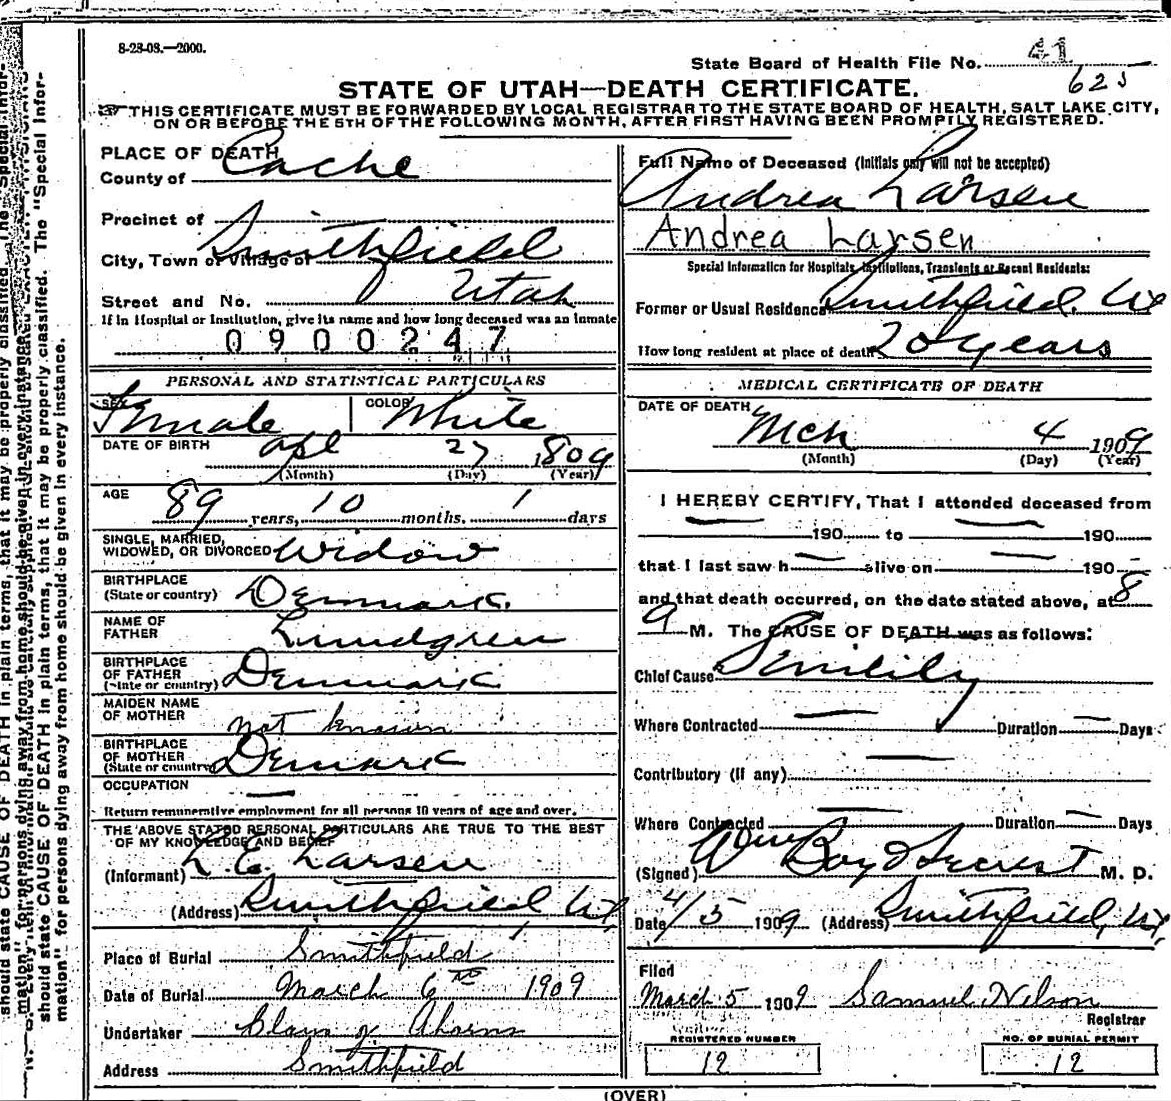 8-28-08.—2000.
State Board of Health File No. 41
625
STATE OF UTAH—DEATH CERTIFICATE.
THIS CERTIFICATE MUST BE FORWARDED BY LOCAL REGISTRAR TO THE STATE BOARD OF HEALTH, SALT LAKE CITY,
ON OR BEFORE THE 5TH OF THE FOLLOWING MONTH, AFTER FIRST HAVING BEEN PROMPTLY REGISTERED.
PLACE OF DEATH
County of Cache
Precinct of
City, Town or Village of Smithfield
Street and No. Utah
If in Hospital or Institution, give its name and how long deceased was an inmate
0900247
PERSONAL AND STATISTICAL PARTICULARS
SEX Female COLOR White
DATE OF BIRTH Apl 27 1809
(Month) (Day) (Year)
AGE
89 years, 10 months. 1 days
SINGLE, MARRIED,
WIDOWED, OR DIVORCED Widow
BIRTHPLACE
(State or country) Denmark.
NAME OF
FATHER Lundgren
BIRTHPLACE
OF FATHER
(State or country) Denmark
MAIDEN NAME
OF MOTHER not known
BIRTHPLACE
OF MOTHER
(State or country) Denmark
OCCUPATION —
Return remunerative employment for all persons 10 years of age and over.
THE ABOVE STATED PERSONAL PARTICULARS ARE TRUE TO THE BEST
OF MY KNOWLEDGE AND BELIEF
(Informant) L. E. Larsen
(Address) Smithfield, Ut,
Place of Burial Smithfield
Date of Burial March 6th 1909
Undertaker
Address Smithfield
Full Name of Deceased (Initials only will not be accepted)
Andrea Larsen
Andrea Larsen
Special Information for Hospitals, Institutions, Transients or Recent Residents:
Former or Usual Residence Smithfield, Ut
How long resident at place of death 20 years
MEDICAL CERTIFICATE OF DEATH
DATE OF DEATH
Mch 4 1909
(Month) (Day) (Year)
I HEREBY CERTIFY, That I attended deceased from
— 190 to — 190
that I last saw h — alive on — 190 —
and that death occurred, on the date stated above, at 8
a M. The CAUSE OF DEATH was as follows:
Chief Cause Senility
Where Contracted — Duration — Days
Contributory (if any) —
Where Contracted — Duration — Days
(Signed) M. D.
Date 4/5 1909 (Address) Smithfield, Ut,
Filed
March 5 1909 Samuel Nelson
Registrar
REGISTERED NUMBER
12
NO. OF BURIAL PERMIT
12
(OVER)
should state CAUSE OF DEATH in plain terms, that it may be properly classified. The "Special Infor-
mation" for persons dying away from home should be given in every instance.